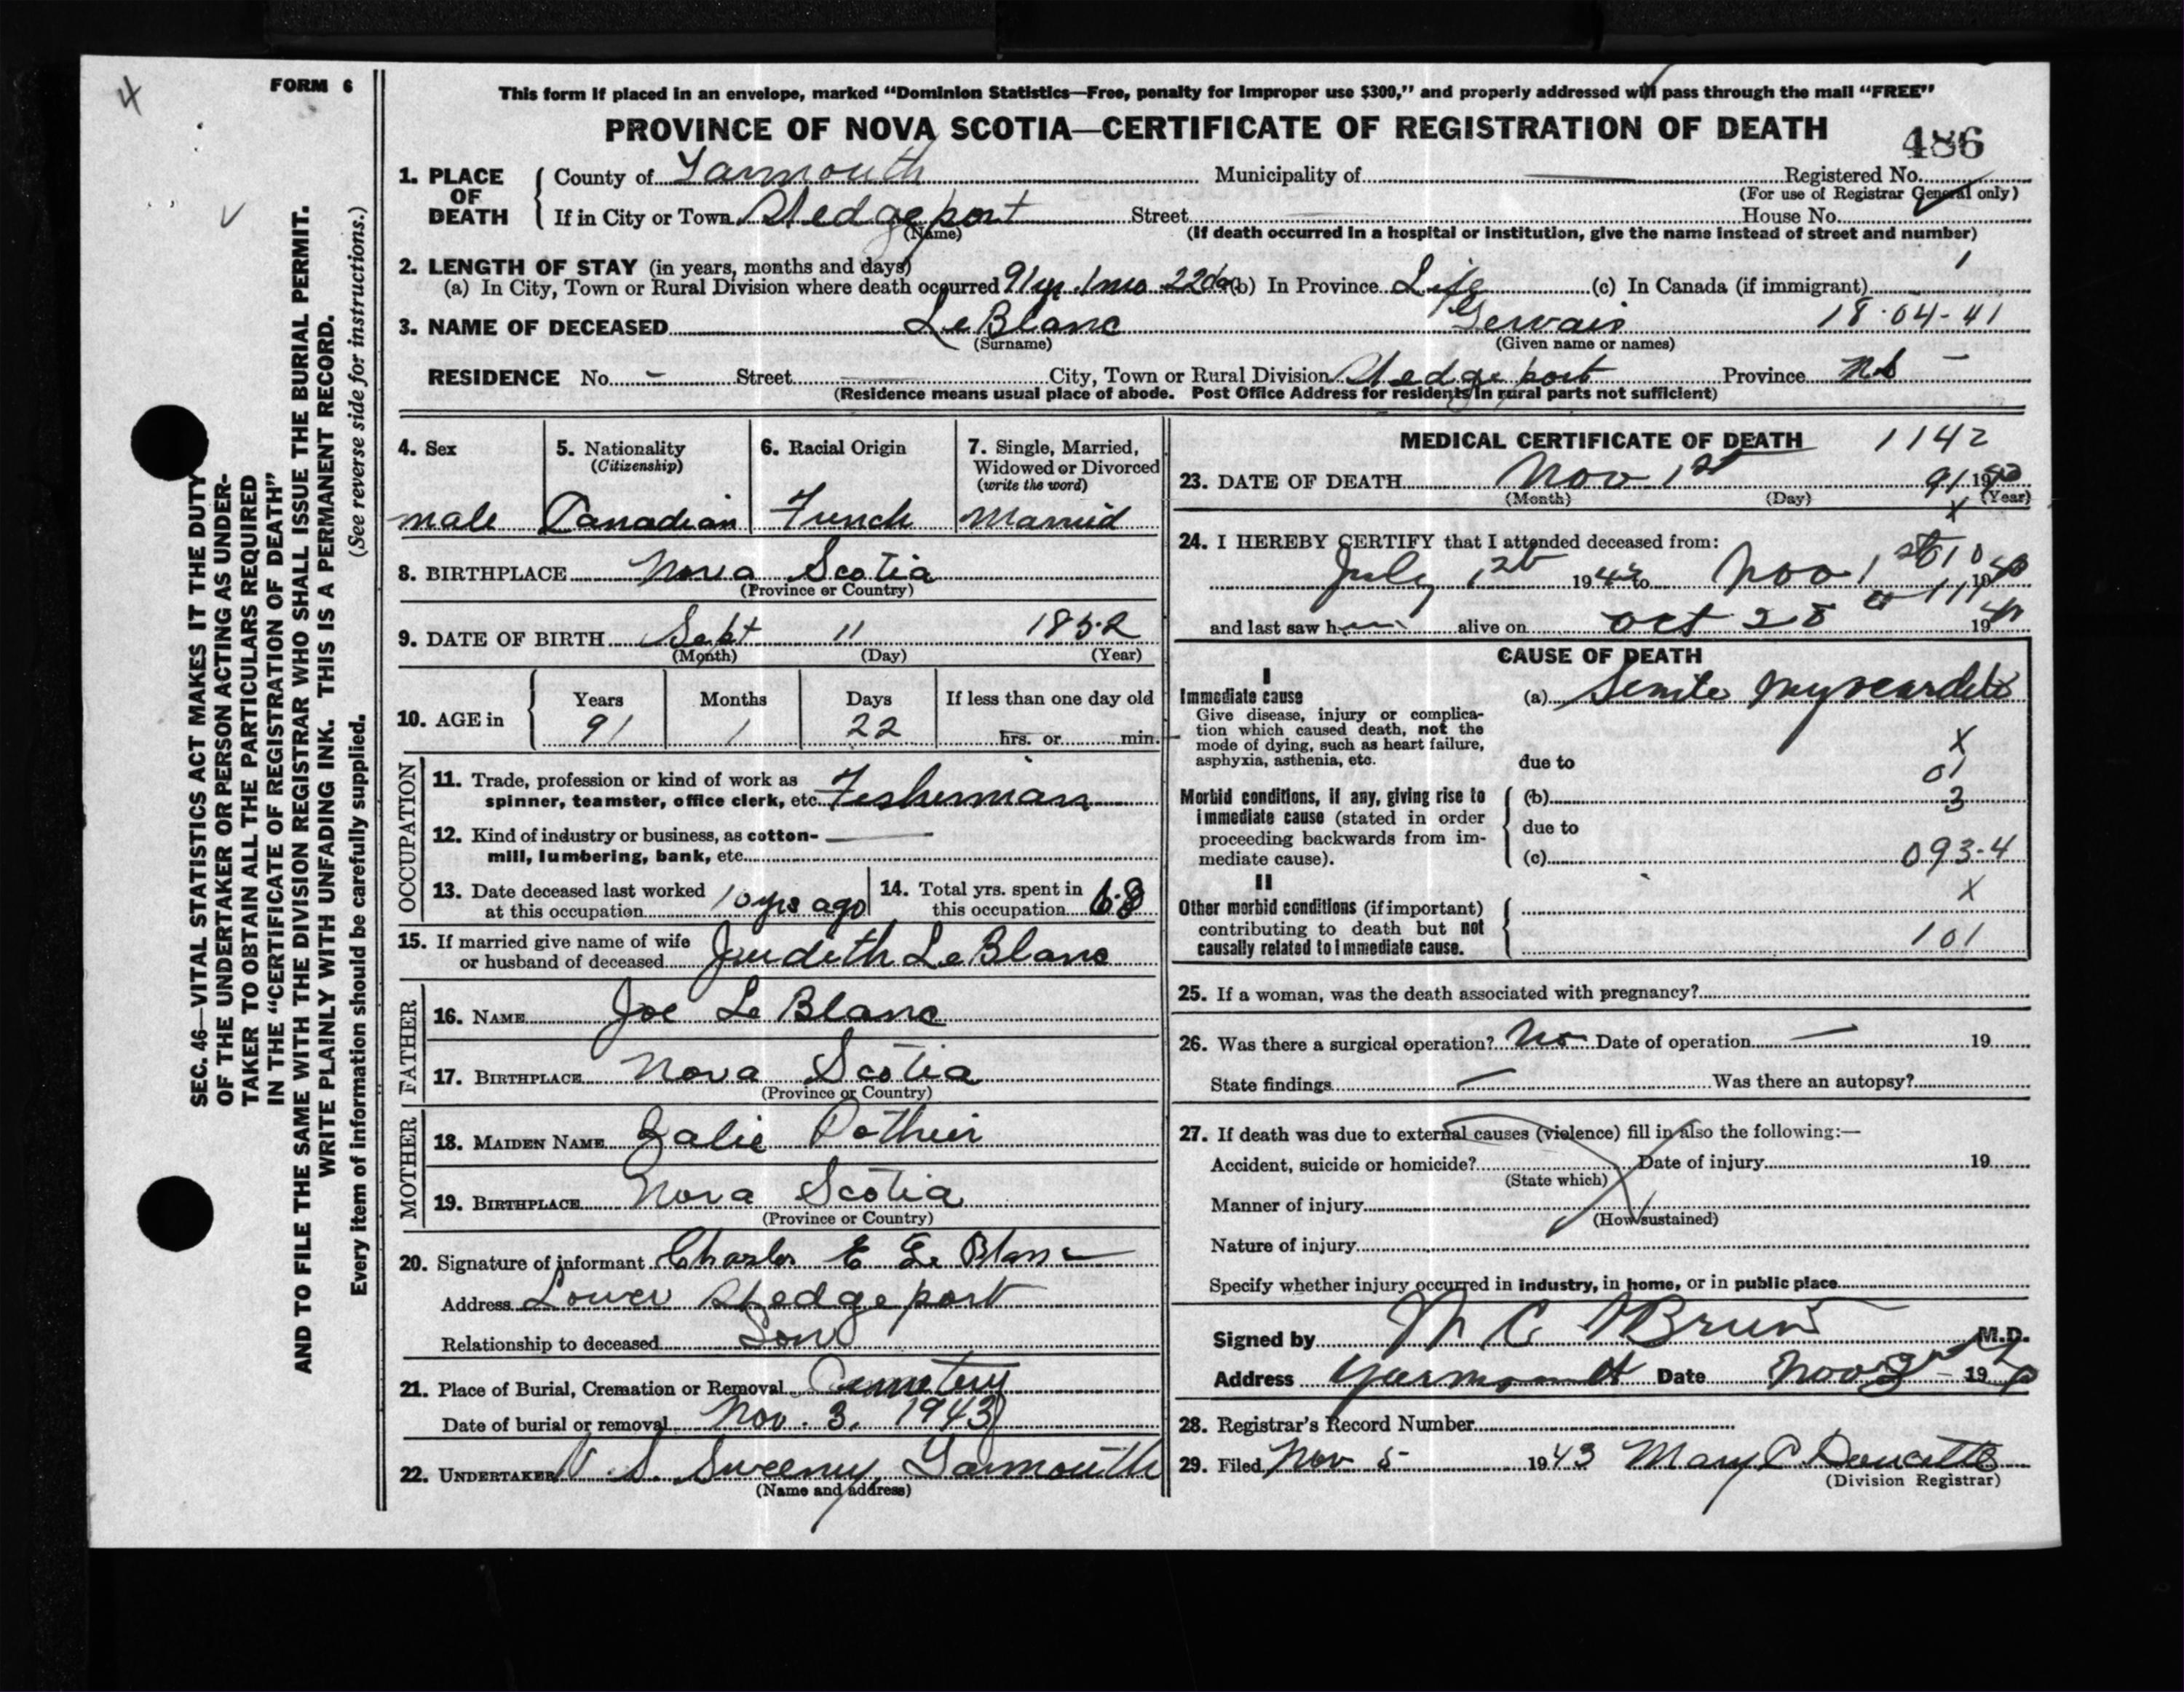 4
FORM 6
This form if placed in an envelope, marked "Dominion Statistics—Free, penalty for improper use $300," and properly addressed will pass through the mail "FREE"
PROVINCE OF NOVA SCOTIA—CERTIFICATE OF REGISTRATION OF DEATH
486
1. PLACE OF DEATH County of Yarmouth Municipality of Registered No.
(For use of Registrar General only)
If in City or Town Wedgeport Street House No.
(Name) (If death occurred in a hospital or institution, give the name instead of street and number)
2. LENGTH OF STAY (in years, months and days)
(a) In City, Town or Rural Division where death occurred 91 yr 1 mo 22 da (b) In Province Life (c) In Canada (if immigrant) 1
3. NAME OF DECEASED LeBlanc Gervais 18-04-41
(Surname) (Given name or names)
RESIDENCE No. - Street City, Town or Rural Division Wedgeport Province NS
(Residence means usual place of abode. Post Office Address for residents in rural parts not sufficient)
4. Sex 5. Nationality (Citizenship) 6. Racial Origin 7. Single, Married, Widowed or Divorced (write the word)
male Canadian French Married
8. BIRTHPLACE Nova Scotia
(Province or Country)
9. DATE OF BIRTH Sept 11 1852
(Month) (Day) (Year)
10. AGE in Years Months Days If less than one day old
91 1 22 hrs. or min.
OCCUPATION
11. Trade, profession or kind of work as
spinner, teamster, office clerk, etc. Fisherman
12. Kind of industry or business, as cotton-
mill, lumbering, bank, etc.
13. Date deceased last worked at this occupation 10 yrs ago
14. Total yrs. spent in this occupation 68
15. If married give name of wife
or husband of deceased Judith LeBlanc
FATHER
16. NAME Joe Le Blanc
17. BIRTHPLACE Nova Scotia
(Province or Country)
MOTHER
18. MAIDEN NAME Zalie Pothier
19. BIRTHPLACE Nova Scotia
(Province or Country)
20. Signature of informant Charles E Le Blanc
Address Lower Wedgeport
Relationship to deceased Son
21. Place of Burial, Cremation or Removal Cemetery
Date of burial or removal Nov. 3, 1943
22. UNDERTAKER V. S. Sweeny, Yarmouth
(Name and address)
MEDICAL CERTIFICATE OF DEATH 1142
23. DATE OF DEATH Nov 1st 91 19
(Month) (Day) (Year)
x
24. I HEREBY CERTIFY that I attended deceased from:
July 1st 194 to Nov 1st 19
and last saw h alive on Oct 28 19
CAUSE OF DEATH
I
Immediate cause (a) Senile Myocarditis
Give disease, injury or complica-
tion which caused death, not the
mode of dying, such as heart failure,
asphyxia, asthenia, etc.
X
due to 01
Morbid conditions, if any, giving rise to
immediate cause (stated in order
proceeding backwards from im-
mediate cause).
(b) 3
due to
(c) 093-4
II
X
Other morbid conditions (if important)
contributing to death but not
causally related to immediate cause.
101
25. If a woman, was the death associated with pregnancy?
26. Was there a surgical operation? No Date of operation 19
State findings Was there an autopsy?
27. If death was due to external causes (violence) fill in also the following:—
Accident, suicide or homicide? Date of injury 19
(State which)
Manner of injury
(How sustained)
Nature of injury
Specify whether injury occurred in industry, in home, or in public place
Signed by M.D.
Address Yarmouth Date Nov 19
28. Registrar's Record Number
29. Filed Nov 5 1943 Mary Doucette
(Division Registrar)
SEC. 46—VITAL STATISTICS ACT MAKES IT THE DUTY
OF THE UNDERTAKER OR PERSON ACTING AS UNDER-
TAKER TO OBTAIN ALL THE PARTICULARS REQUIRED
IN THE "CERTIFICATE OF REGISTRATION OF DEATH"
AND TO FILE THE SAME WITH THE DIVISION REGISTRAR WHO SHALL ISSUE THE BURIAL PERMIT.
WRITE PLAINLY WITH UNFADING INK. THIS IS A PERMANENT RECORD.
Every item of information should be carefully supplied. (See reverse side for instructions.)